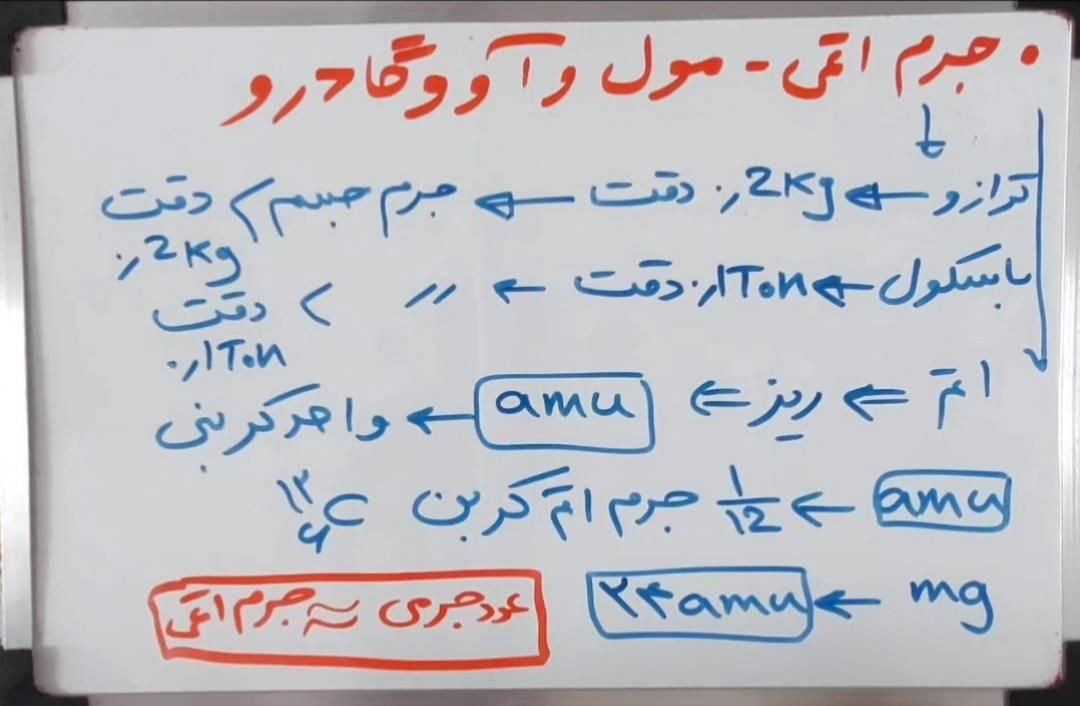 • جرم اتمی - مول و آووگادرو
ترازو ← ۰٫2Kg دقت ← جرم جسم > دقت ۰٫2Kg
باسکول ← ۰٫۱Ton دقت ← 〃 > دقت ۰٫۱Ton
اتم ⇐ ریز ⇐ amu ← واحد کربنی
amu ← ۱/12 جرم اتم کربن ¹²₆C
mg ← ۲۴amu
عدد جرمی ≈ جرم اتمی